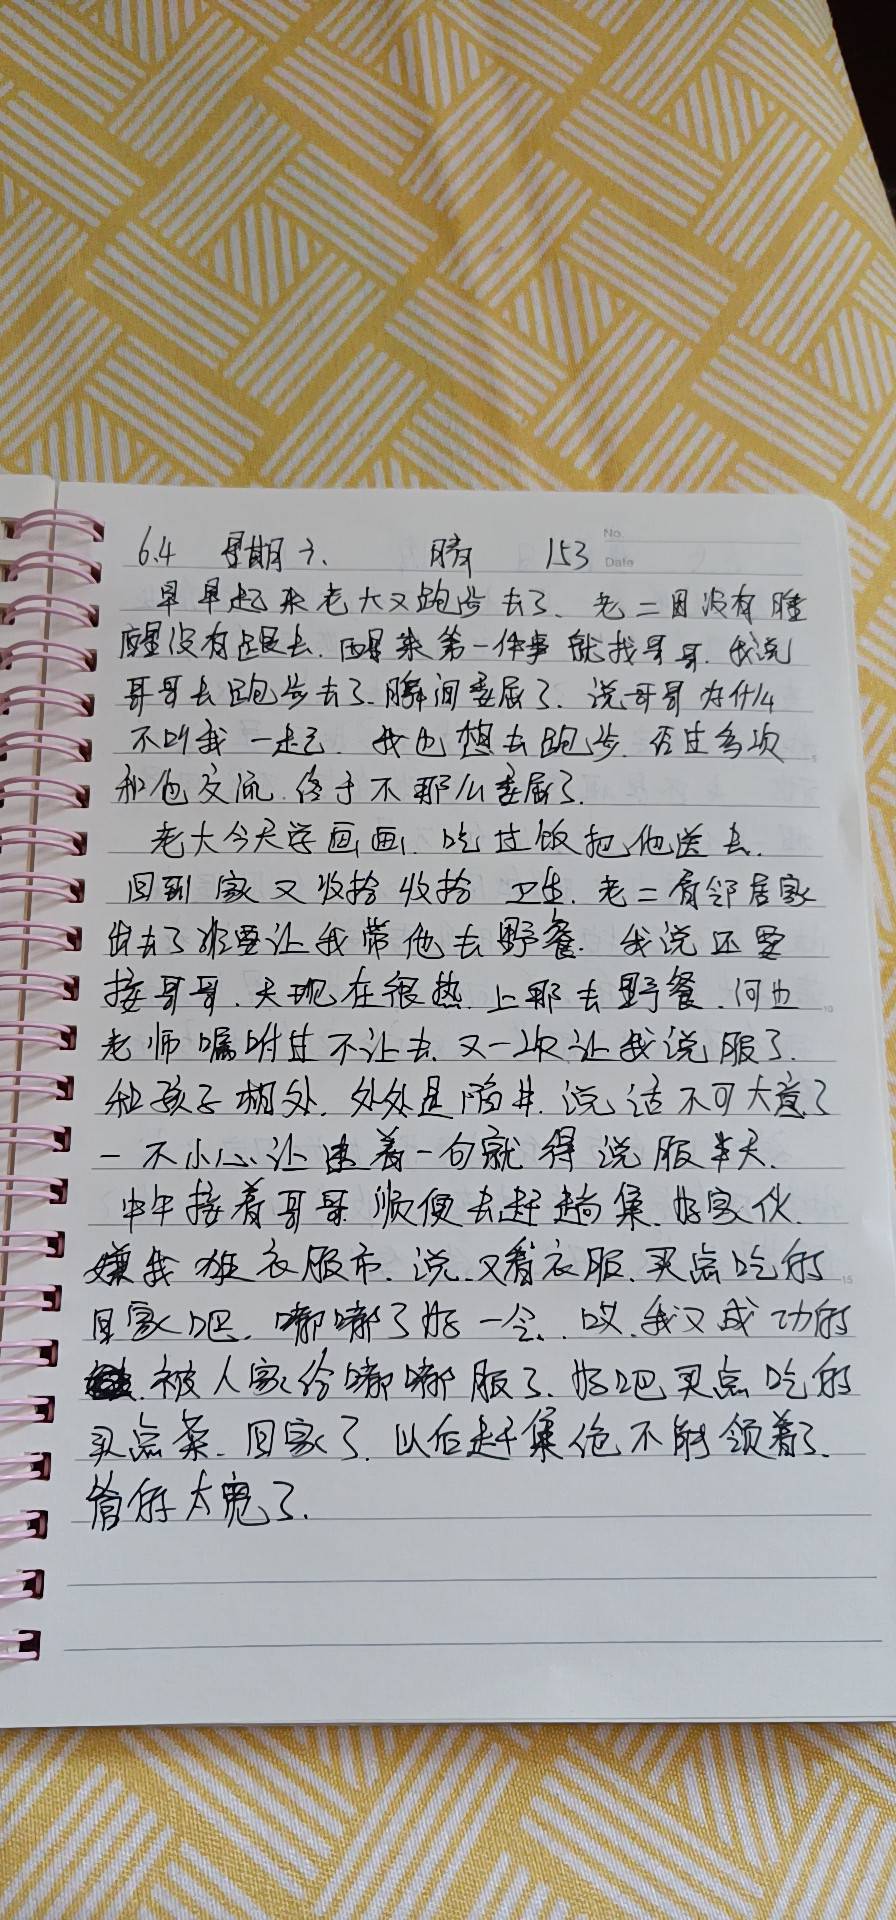 6.4 星期六. 晴 153 No.
Date
早早起来老大又跑步去了、老二因没有睡
醒没有跟去.醒来第一件事就找哥哥.我说
哥哥去跑步去了.瞬间委屈了.说哥哥为什么
不叫我一起.我也想去跑步.经过多次
和他交流.终于不那么委屈了.
老大今天学画画.吃过饭把他送去.
回到家又收拾收拾卫生.老二看邻居家
出去了非要让我带他去野餐.我说还要
接哥哥、天现在很热.上那去野餐.何也
老师嘱咐过不让去.又一次让我说服了.
和孩子相处.处处是陷井.说话不可大意了
一不小心让逮着一句就得说服半天.
中午接着哥哥顺便去赶趟集.好家伙.
嫌我逛衣服市.说又看衣服.买点吃的
回家吧.嘟嘟了好一会.哎.我又成功的
被人家给嘟嘟服了.好吧买点吃的
买点菜.回家了.以后赶集绝不能领着了.
管得太宽了.
5
10
15